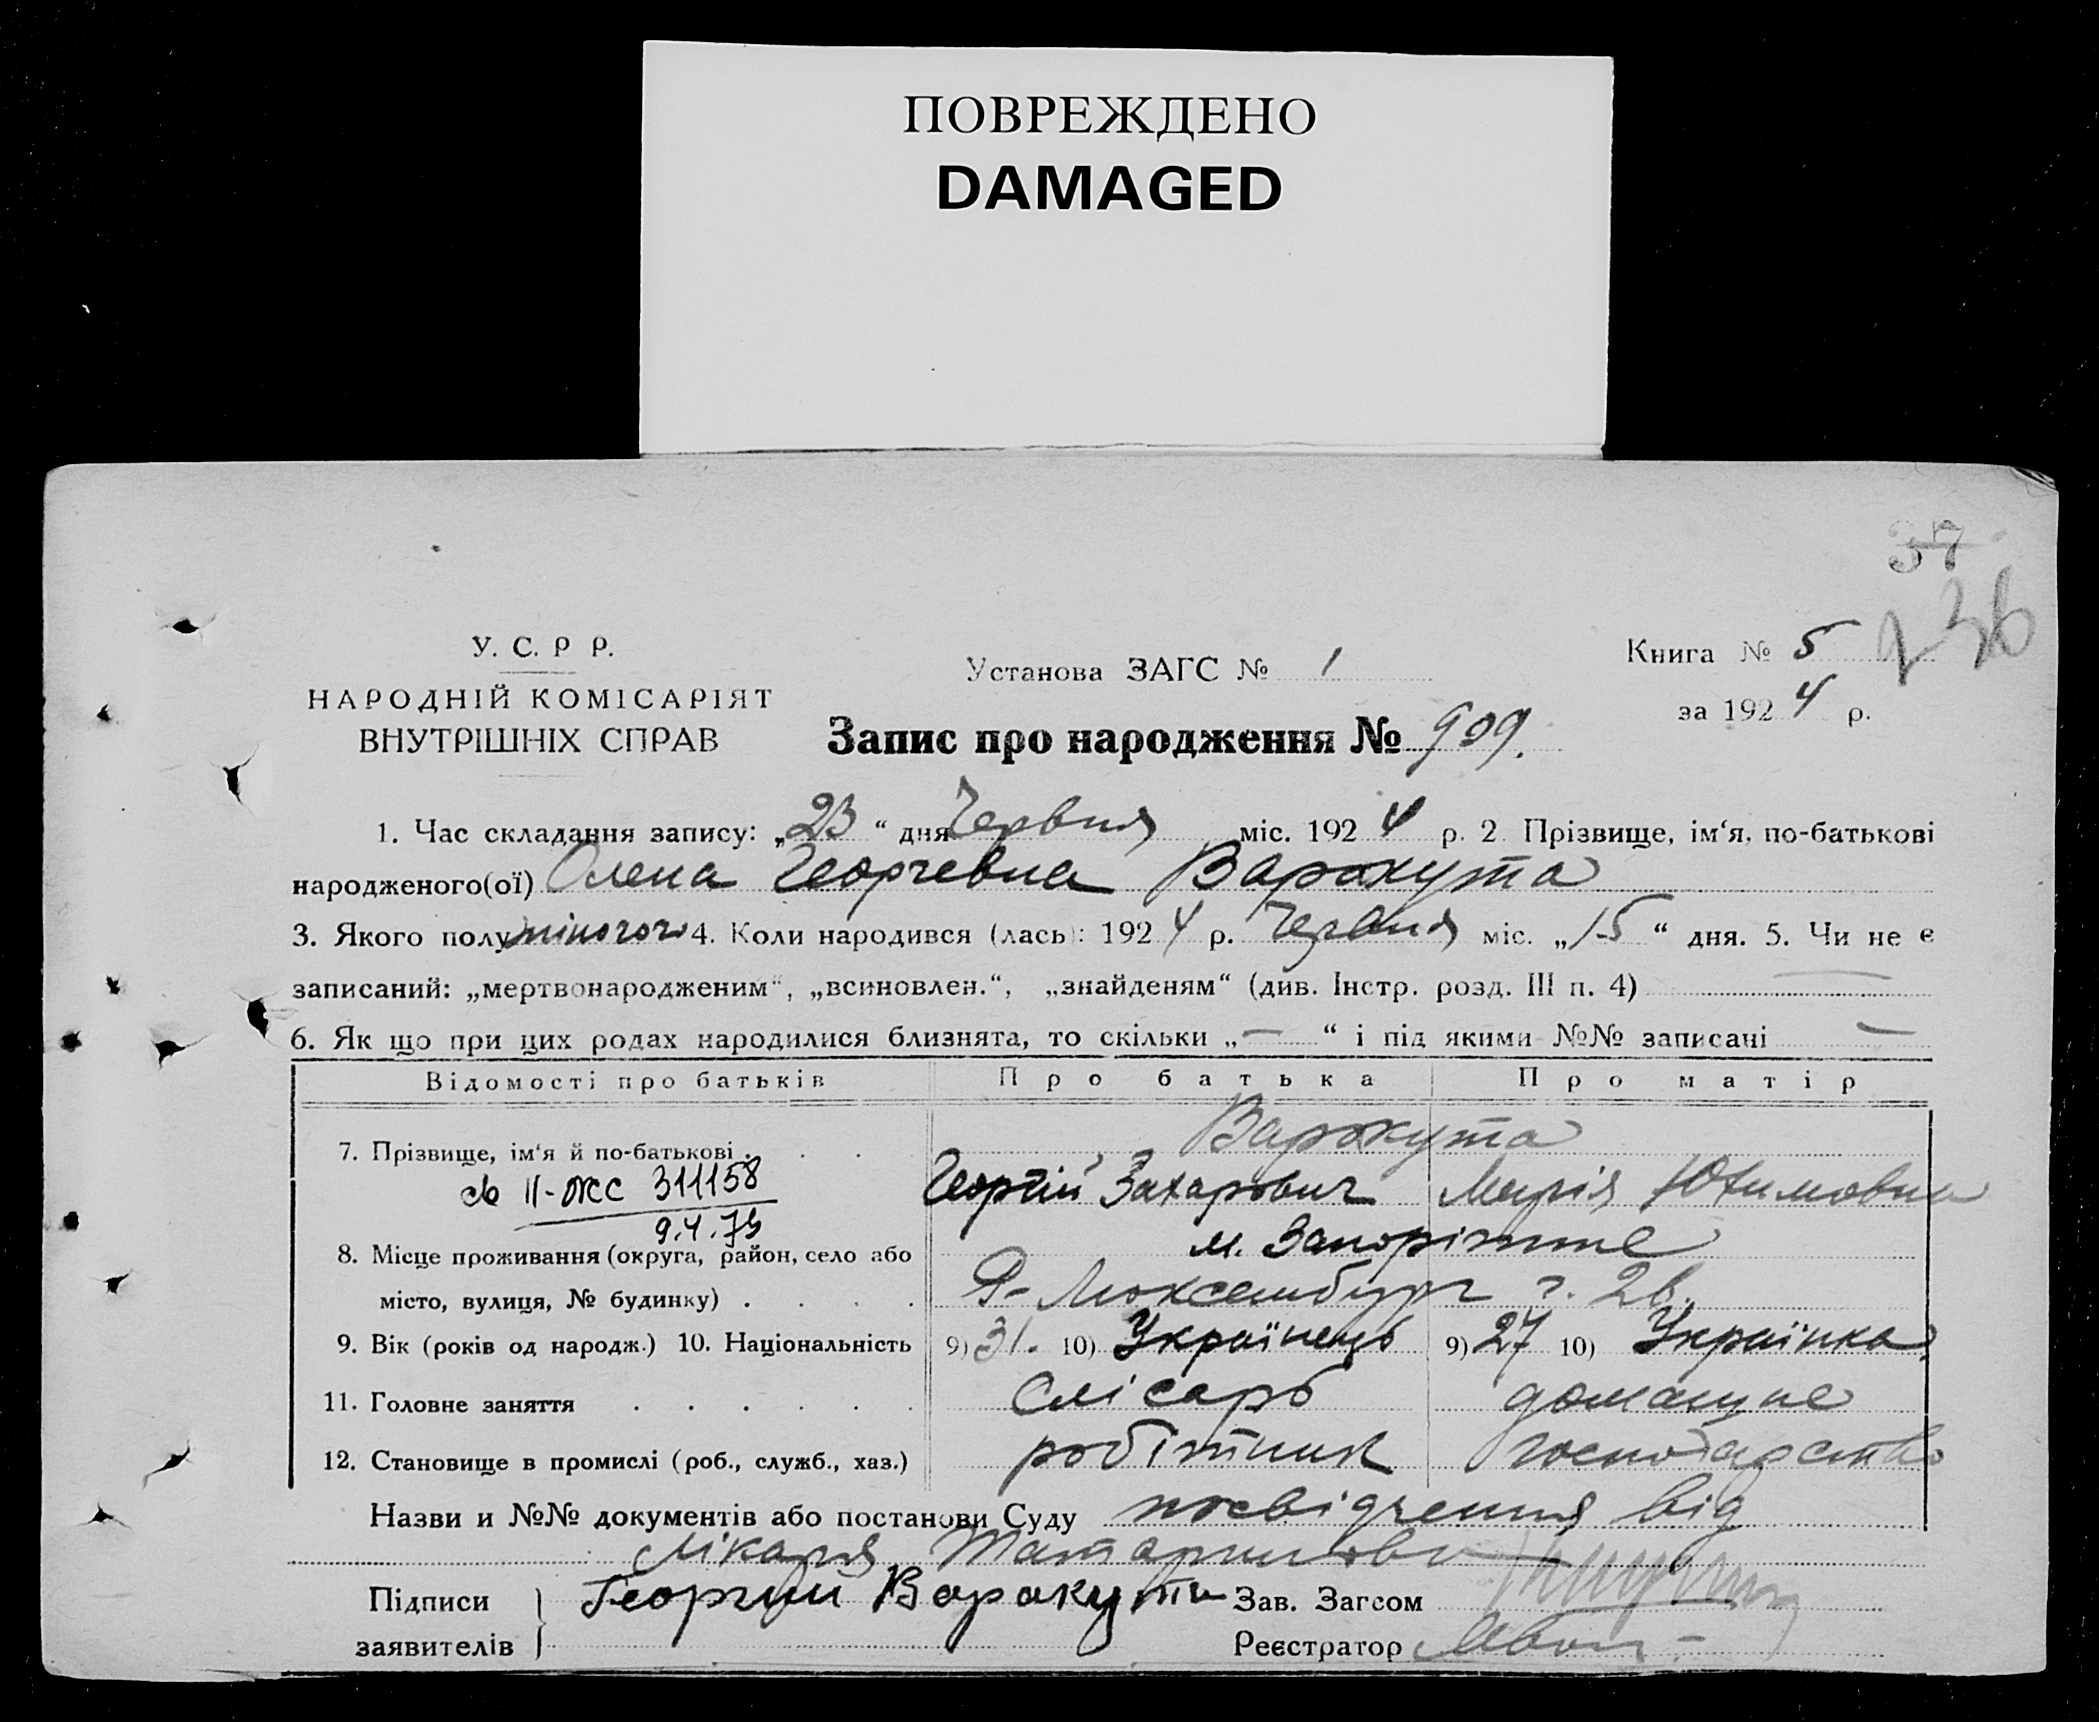 ПОВРЕЖДЕНО
DAMAGED
37
236
У. С. Р Р.
НАРОДНІЙ КОМІСАРІЯТ
ВНУТРІШНІХ СПРАВ
Установа ЗАГС № 1
Книга № 5
за 1924 р.
Запис про народження № 909.
1. Час складання запису: „23“ дня Червня міс. 1924 р. 2 Прізвище, ім‘я, по-батькові
народженого(ої) Олена Георгевна Варакута
3. Якого полу жіночого 4. Коли народився (лась): 1924 р. Червня міс. „15“ дня. 5. Чи не є
записаний: „мертвонародженим“, „всиновлен.“, „знайденям“ (див. Інстр. розд. III п. 4) —
6. Як що при цих родах народилися близнята, то скільки „—“ і під якими №№ записані —
Відомості про батьків Про батька Про матір
7. Прізвище, ім‘я й по-батькові . . . Варакута
Георгій Захарович Марія Юхимовна
№ II-ЖС 311158
9.4.79
8. Місце проживання (округа, район, село або м. Запоріжже
місто, вулиця, № будинку) . . . . Р-Люксембург 2в.
9. Вік (років од народж.) 10. Національність 9) 31. 10) Українець 9) 27 10) Українка
11. Головне заняття . . . . . . Слісарь домашне
12. Становище в промислі (роб., служб., хаз.) робітник господарство
Назви и №№ документів або постанови Суду посвідчення від
лікаря
Підписи
заявителів
Георгий Варакута
Зав. Загсом
Реєстратор